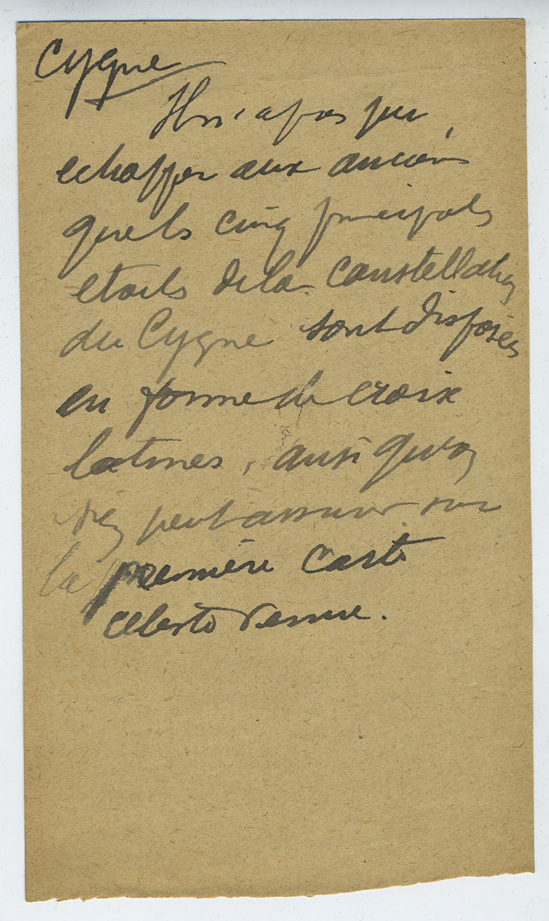 Cygne
Il n'a pas pu
echapper aux anciens
que les cinq principales
etoiles de la constellation
du Cygne sont disposées
en forme de croix
latines, ainsi qu'on
peut assurer sur
la première carte
céleste venue.